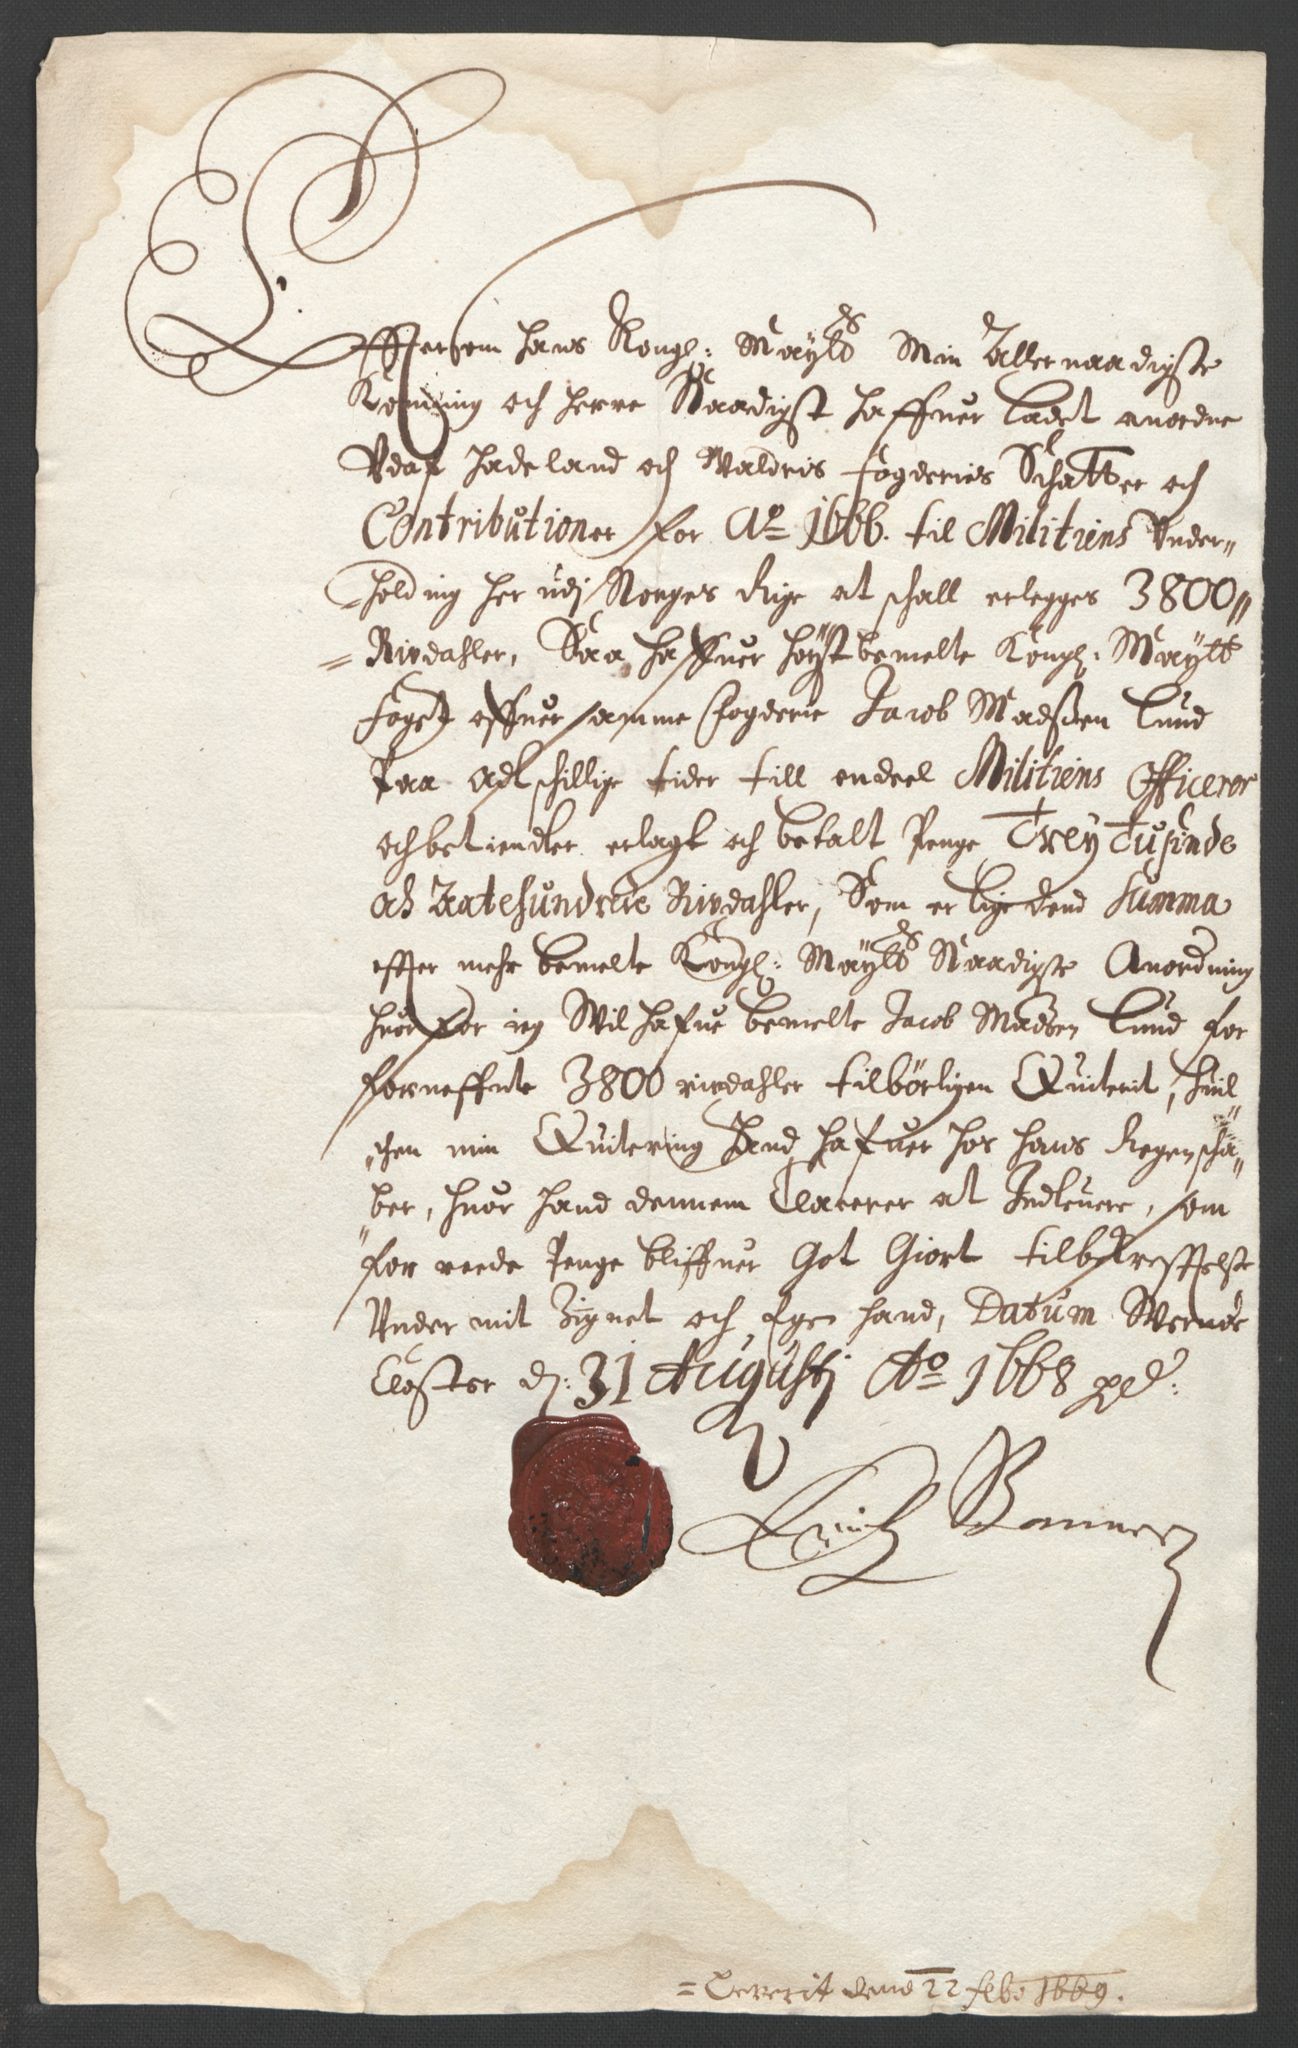 Effersom hans Kongl: Maytts Min Allernaadigste
Konning och herre Naadigst haffuer Ladet anordne
Vdaf Hadeland och Waldris fogderies Schatter och
Contributioner for Ao 1666. til Militiens Vnder-
holding her udj Norges Rige at schall erlegges 3800
Rixdahler, Saa haffuer høystbemelte Kongl: Maytts
foget offuer samme fogderie Jacob Madtzen Lund
Paa adschillige tider till endeel Militiens Officerer
och betiendter erlagt och betalt Penge Trey Tusinde
och Aatehundrede Rixdahler, Som er lige dend Summa
effter mehr bemelte Kongl: Maytts Naadigste Anordning
huorfor jeg Wil hafue bemelte Jacob Madtzen Lund for
forneffnte 3800 rixdahler tilbørligen Quiterit, huil-
chen min Quitering hand hafuer hos hans Regenscha-
ber, huor hand dennem Clarerer at Indleuere, som
for reede Penge bliffuer Got Giort til bekreffelse
Vnder mit Zignet och Egen hand, Datum Werne
Closter dj: 31 Augustj Ao 1668
Erich Banner
Leverit dend 22 feb: 1669.